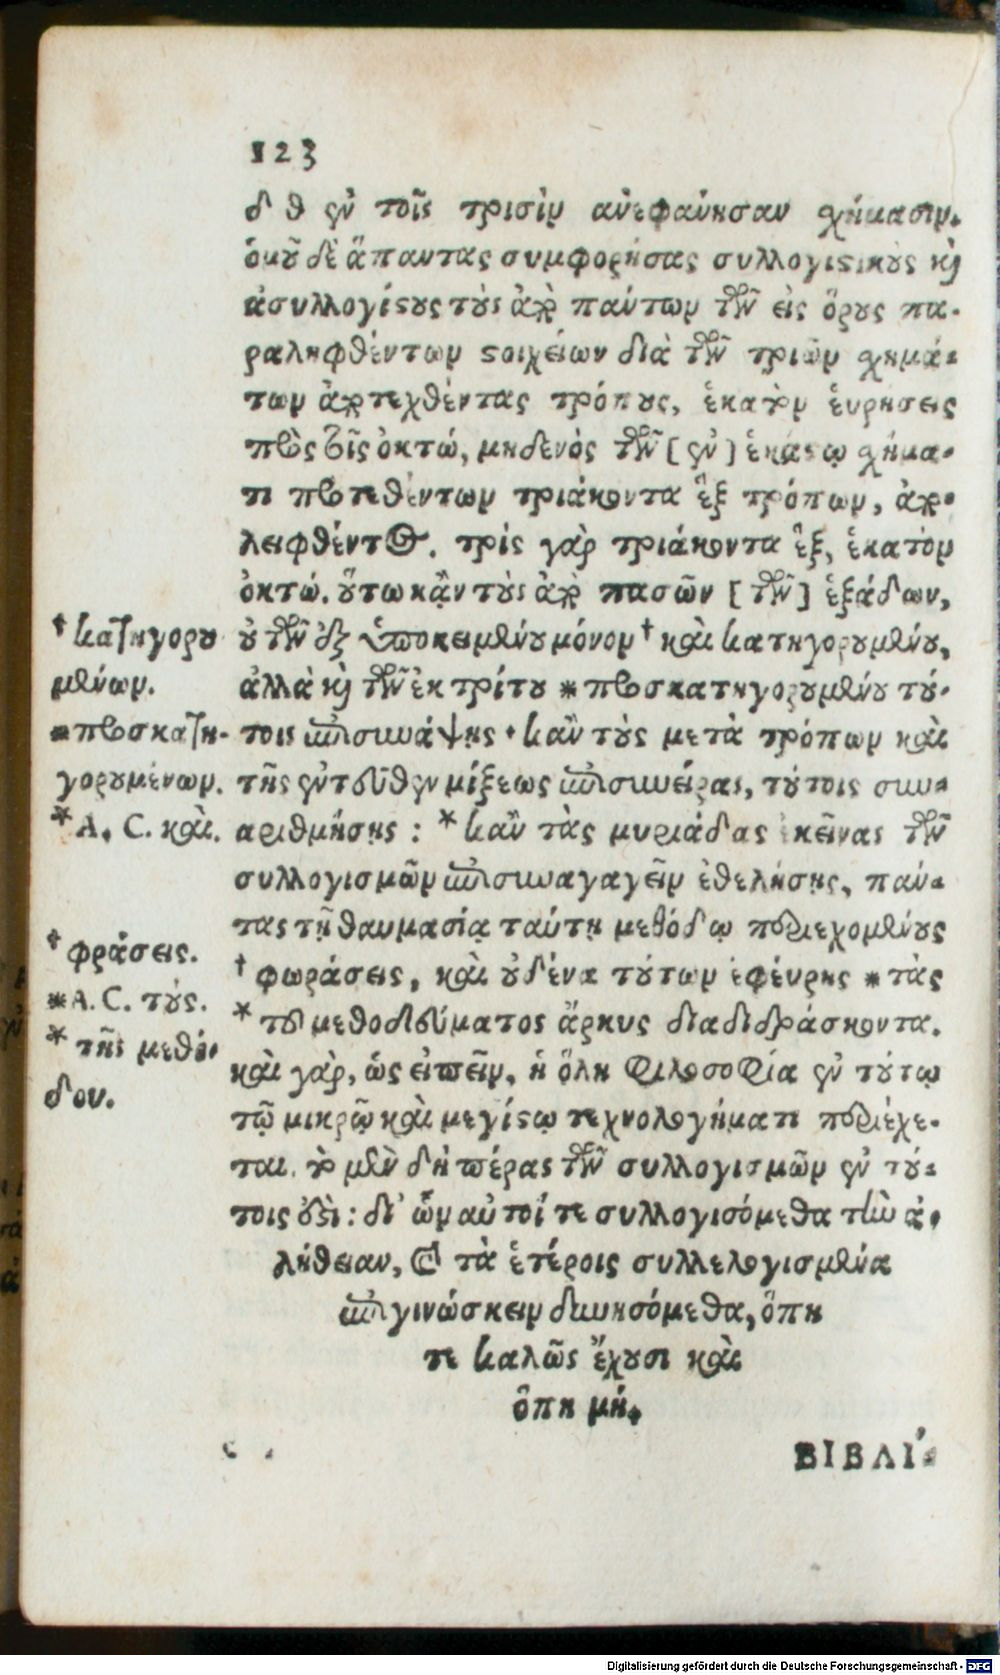 123
δ θ ἐν τοῖς τρισὶν ἀνεφαύησαν σχήμασιν.
ὁμοῦ δὲ ἅπαντας συμφορήσας συλλογιστικοὺς καὶ
ἀσυλλογίστους τοὺς ἀπὸ πάντων τῶν εἰς ὅρους πα-
ραληφθέντων στοιχείων διὰ τῶν τριῶν σχημά-
των ἀποτεχθέντας τρόπους, ἑκατὸν εὑρήσεις
πρὸς τοῖς ὀκτώ, μηδενὸς τῶν [ἐν] ἑκάστῳ σχήμα-
τι προτεθέντων τριάκοντα ἓξ τρόπων, ἀπο-
λειφθέντος. τρὶς γὰρ τριάκοντα ἓξ, ἑκατὸν
ὀκτώ. οὕτω κᾂν τοὺς ἀπὸ πασῶν [τῶν] ἑξάδων,
οὐ τῶν ἐξ ὑποκειμένου μόνον † καὶ κατηγορουμένου,
ἀλλὰ καὶ τῶν ἐκ τρίτου * προσκατηγορουμένου τού-
τοις ἐπισυνάψῃς · κἂν τοὺς μετὰ τρόπων καὶ
τῆς ἐντεῦθεν μίξεως ἐπισυνείρας, τούτοις συν-
αριθμήσῃς : * κἂν τὰς μυριάδας ἐκεῖνας τῶν
συλλογισμῶν ἐπισυναγαγεῖν ἐθελήσῃς, πάν-
τας τῇ θαυμασίᾳ ταύτῃ μεθόδῳ περιεχομένους
† φωράσεις, καὶ οὐδένα τούτων ἐφεύρης * τὰς
* τοῦ μεθοδεύματος ἄρκυς διαδιδράσκοντα.
καὶ γὰρ, ὡς εἰπεῖν, ἡ ὅλη φιλοσοφία ἐν τούτῳ
τῷ μικρῷ καὶ μεγίστῳ τεχνολογήματι περιέχε-
ται. τὸ μὲν δὴ πέρας τῶν συλλογισμῶν ἐν τού-
τοις ἐστί : δι' ὧν αὐτοί τε συλλογισόμεθα τὴν ἀ-
λήθειαν, καὶ τὰ ἑτέροις συλλελογισμένα
ἐπιγινώσκειν δυνησόμεθα, ὅπη
τε καλῶς ἔχουσι καὶ
ὅπη μή.
ΒΙΒΛΙ´-
† κατηγορου
μένων.
* προσκατη-
γορουμένων.
* A. C. καὶ.
† φράσεις.
* A. C. τούς.
* τῆς μεθό-
δου.
Digitalisierung gefördert durch die Deutsche Forschungsgemeinschaft - DFG